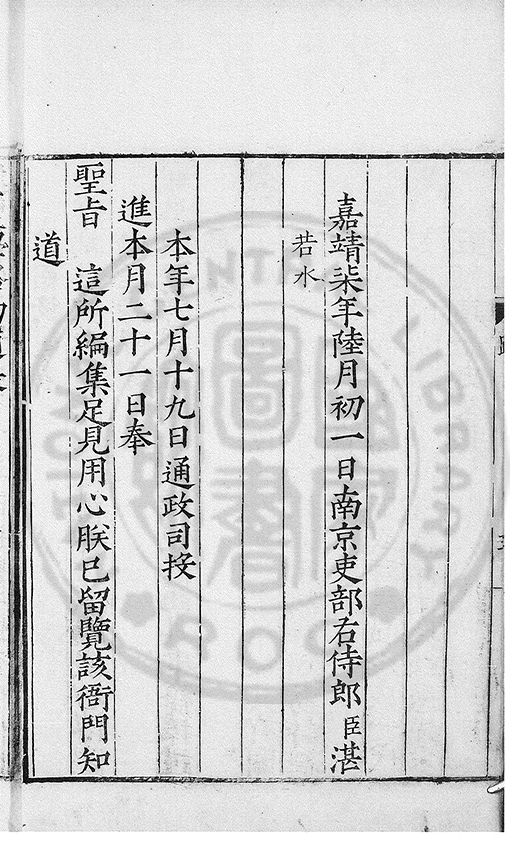 嘉靖柒年陸月初一日南京吏部右侍郎臣湛
若水
本年七月十九日通政司投
進本月二十一日奉
聖旨　這所編集足見用心朕已留覽該衙門知
道